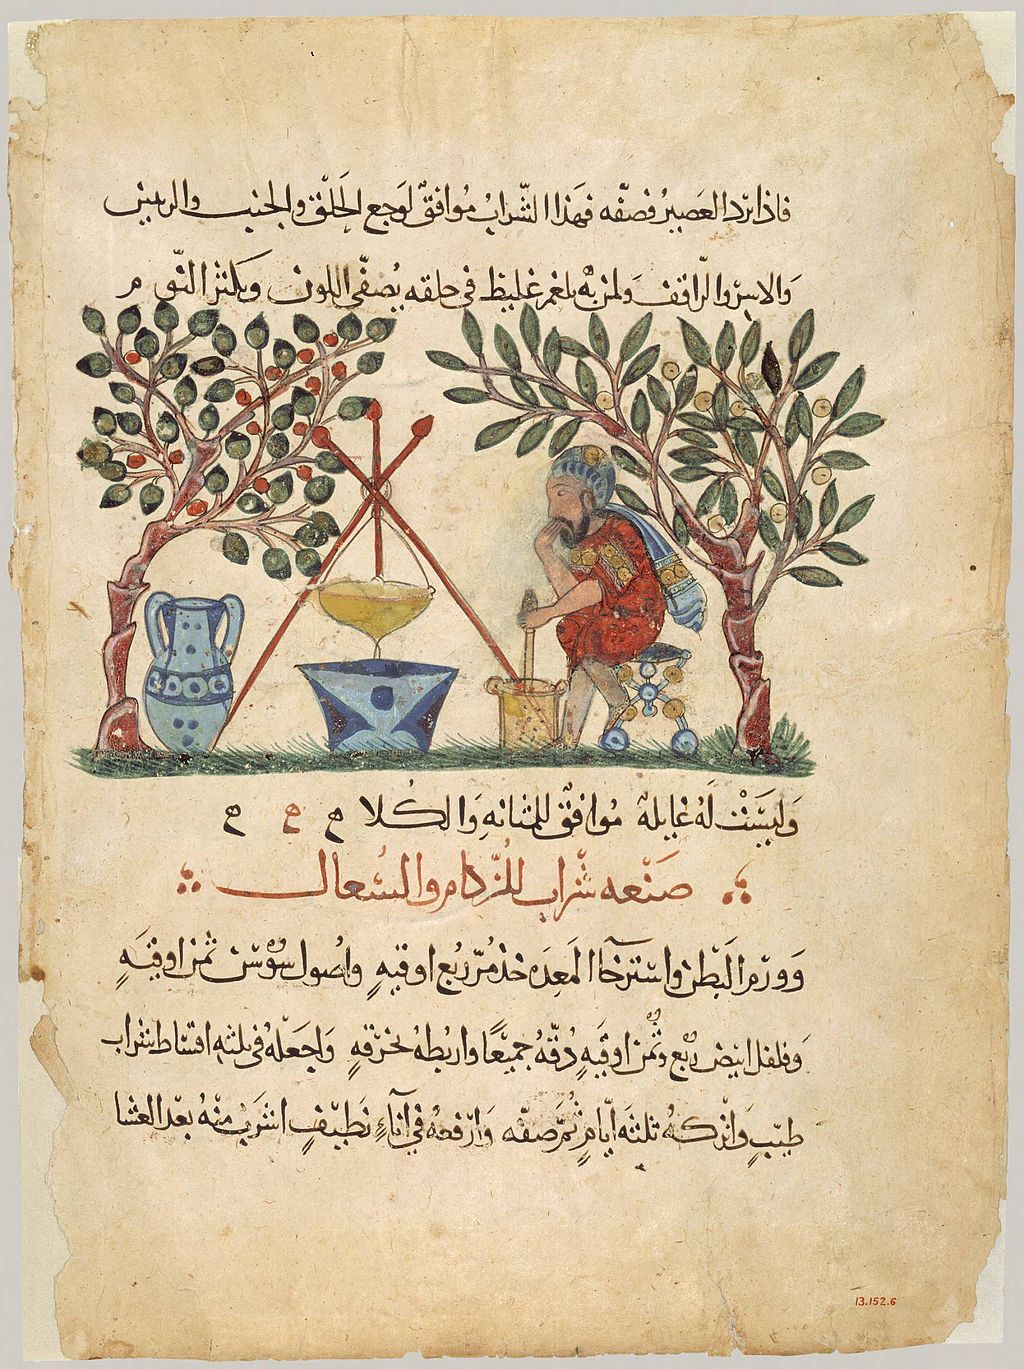 فاذا برد العصير فصفّه فهذا الشّرابُ مُوافقٌ لوَجع الحَلَق والجنب والرئتين
وَالاسرّ والرّاقف ولمن به بلغم غليظ فى حلقه يُصفّى اللون ويكثر النّوم
وَليسَتْ لَهُ غايله مُوافقٌ للمثانهِ وَالكُلا ح ح ح
صَنعه شَراب للزُّكام والسُعال
وَورم البَطن واستَرخآ المَعِدَه خذ مُرّ ربُع اوقيهٍ واُصُول سَوْسَن ثمن اوقيَهٍ
وَفلفل ابيَض ربُع وثُمن اوقيَهٍ دُقّهُ جميعًا واربُطهُ بخرقهٍ وَاجعَلهُ فى ثلثه اقسَاط شراب
طيّبٍ وَاتركهُ ثلثَه ايّامٍ ثُمّ صَفّه وَارفعهُ فى اناءٍ نَظيفٍ اشرَب منهُ بعد العَشا
13.152.6